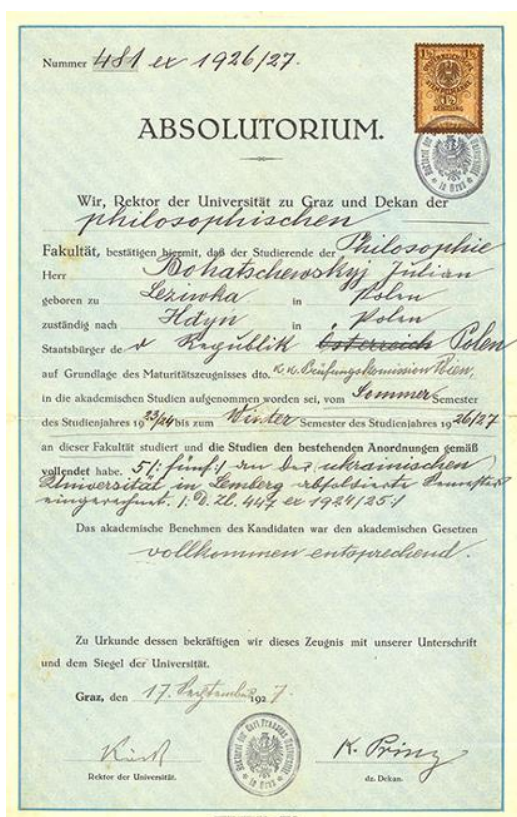 Nummer 481 ex 1926/27.
1½
1½
SCHILLING
ABSOLUTORIUM.
Wir, Rektor der Universität zu Graz und Dekan der
philosophischen
Fakultät, bestätigen hiermit, daß der Studierende der Philosophie
Herr Bohatschewskyj Julian
geboren zu Leziwka in Polen
zuständig nach Hdyn in Polen
Staatsbürger der Republik Österreich Polen
auf Grundlage des Maturitätszeugnisses dto. k.k. Prüfungskomission Wien,
in die akademischen Studien aufgenommen worden sei, vom Sommer Semester
des Studienjahres 1923/24 bis zum Winter Semester des Studienjahres 1926/27
an dieser Fakultät studiert und die Studien den bestehenden Anordnungen gemäß
vollendet habe. 5/: fünf:/ an der ukrainischen
Universität in Lemberg absolvierte Semester
eingerechnet. /: D. Zl. 447 ex 1924/25:/
Das akademische Benehmen des Kandidaten war den akademischen Gesetzen
vollkommen entsprechend.
Zu Urkunde dessen bekräftigen wir dieses Zeugnis mit unserer Unterschrift
und dem Siegel der Universität.
Graz, den 17. September 1927.
K. Prinz
Rektor der Universität.
dz. Dekan.